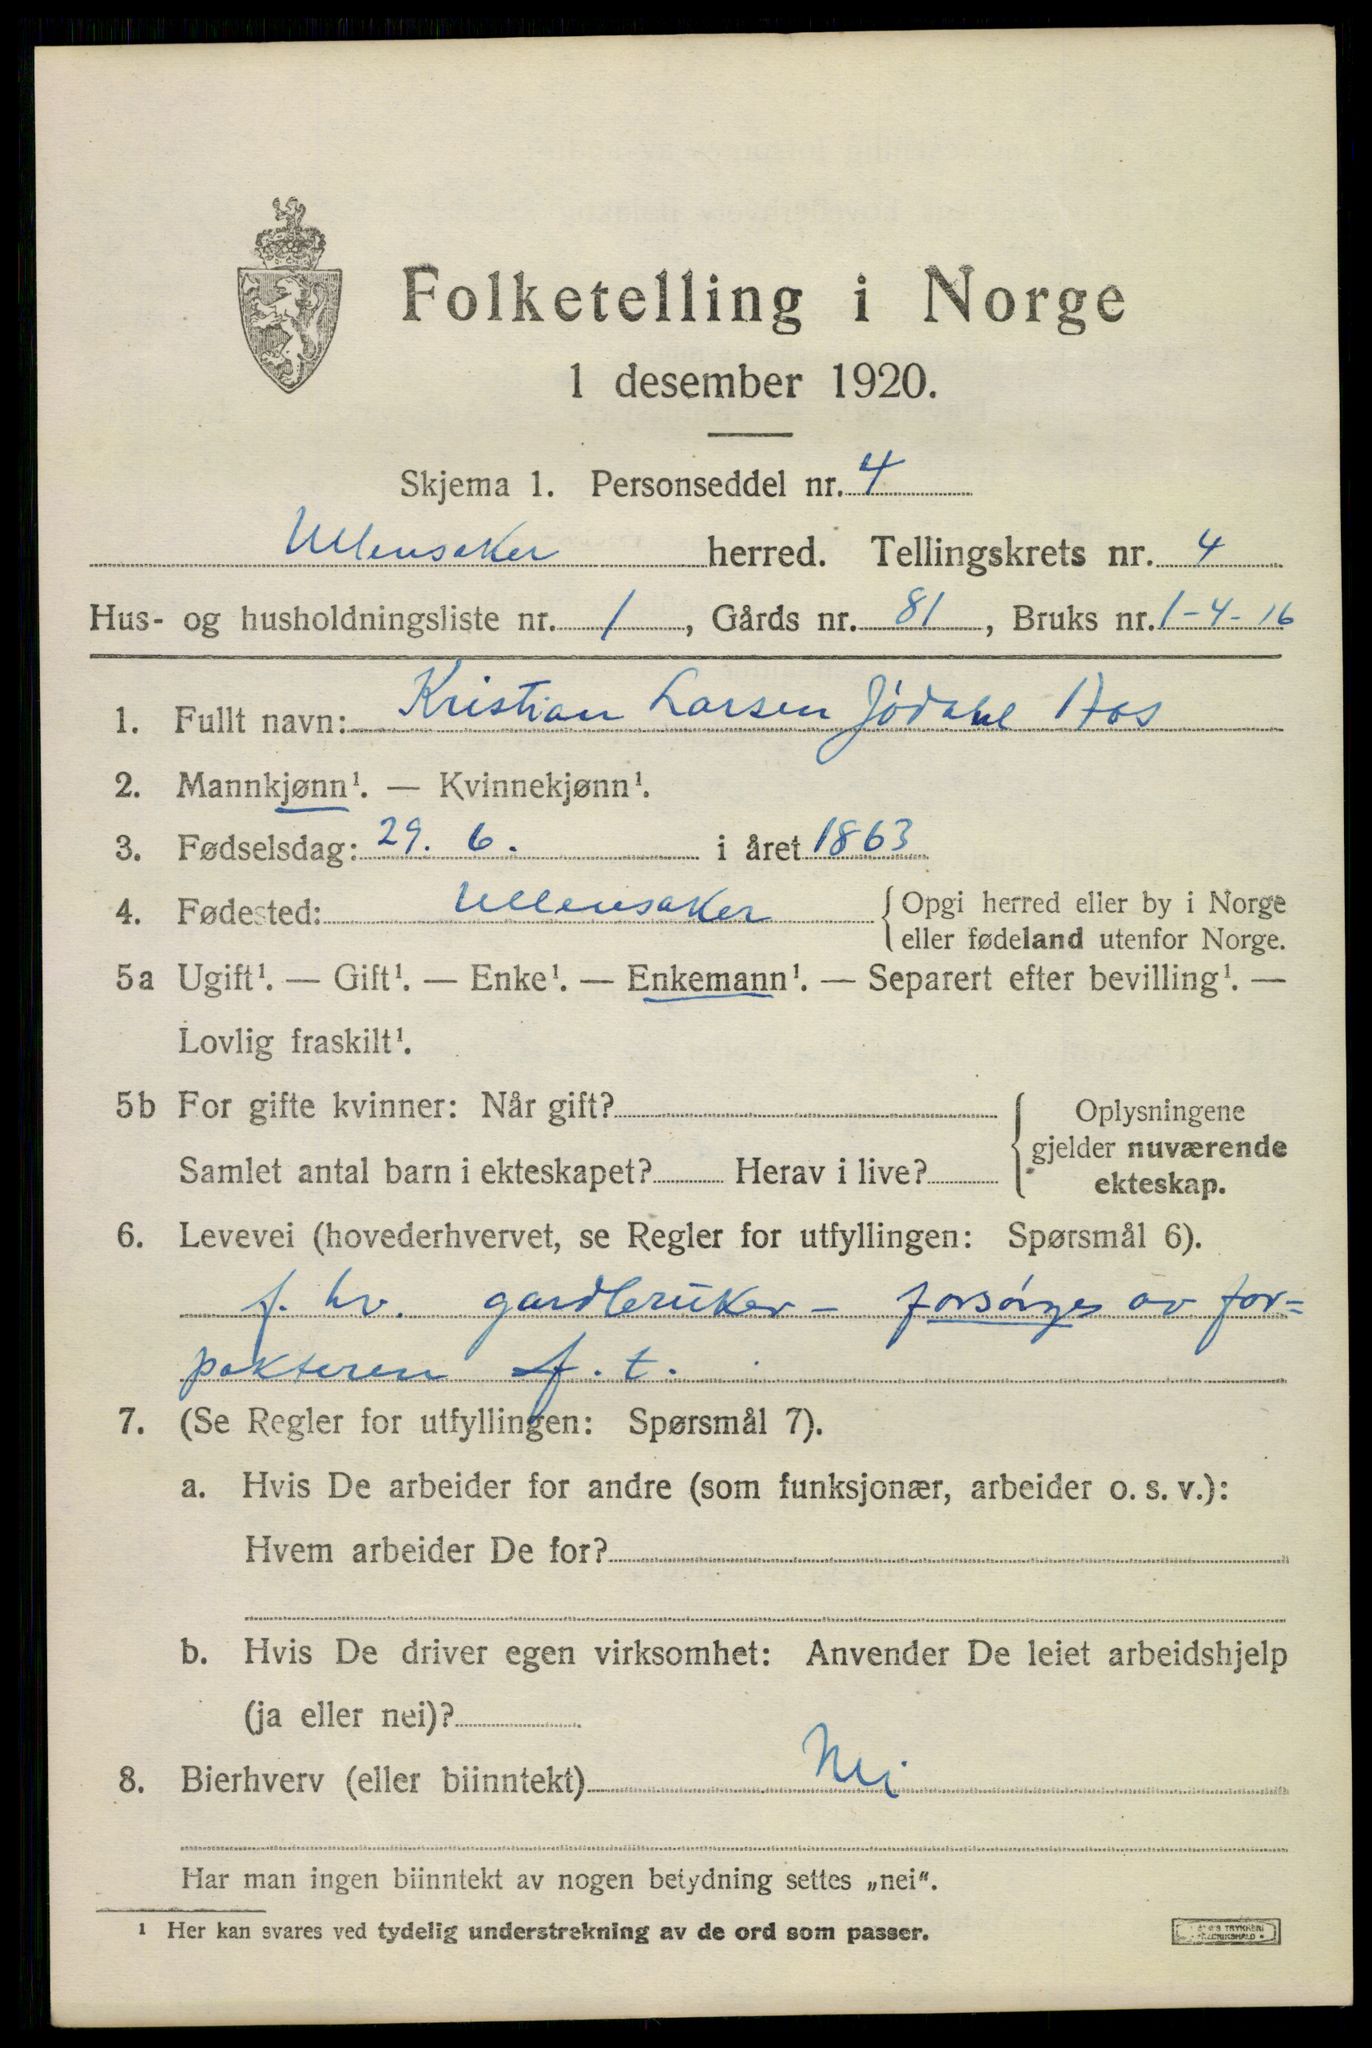 Folketelling i Norge
1 desember 1920.
Skjema 1. Personseddel nr. 4
Ullensaker herred. Tellingskrets nr. 4
Hus- og husholdningsliste nr. 1, Gårds nr. 81, Bruks nr. 1-4-16
1. Fullt navn: Kristian Larsen Jødahl Aas
2. Mannkjønn¹. — Kvinnekjønn¹.
3. Fødselsdag: 29. 6. i året 1863
4. Fødested: Ullensaker { Opgi herred eller by i Norge
eller fødeland utenfor Norge.
5a Ugift¹. — Gift¹. — Enke¹. — Enkemann¹. — Separert efter bevilling¹. —
Lovlig fraskilt¹.
5b For gifte kvinner: Når gift? { Oplysningene
gjelder nuværende
Samlet antal barn i ekteskapet? Herav i live?
ekteskap.
6. Levevei (hovederhvervet, se Regler for utfyllingen: Spørsmål 6).
f. hv. gardbruker - forsørges av for=
pakteren f. t.
7. (Se Regler for utfyllingen: Spørsmål 7).
a. Hvis De arbeider for andre (som funksjonær, arbeider o. s. v.):
Hvem arbeider De for?
b. Hvis De driver egen virksomhet: Anvender De leiet arbeidshjelp
(ja eller nei)?
8. Bierhverv (eller biinntekt) Nei
Har man ingen biinntekt av nogen betydning settes „nei“.
¹ Her kan svares ved tydelig understrekning av de ord som passer.
TRYKKERI